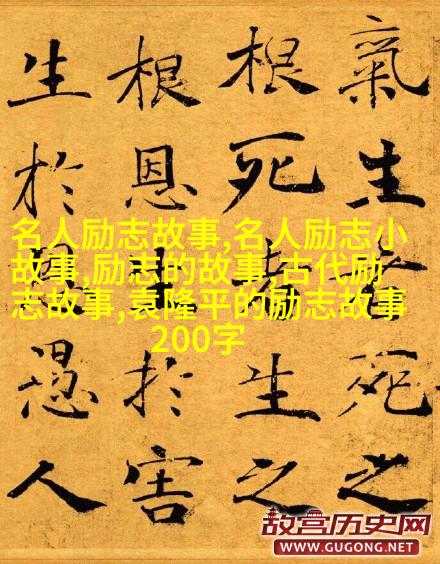 氣生者死之
根死者生之
根恩生於害
生於恩愚人
名人励志故事,名人励志小
故事,励志的故事,古代励
志故事,袁隆平的励志故事
200字
故宫历史网
WWW.GUGONG.NET